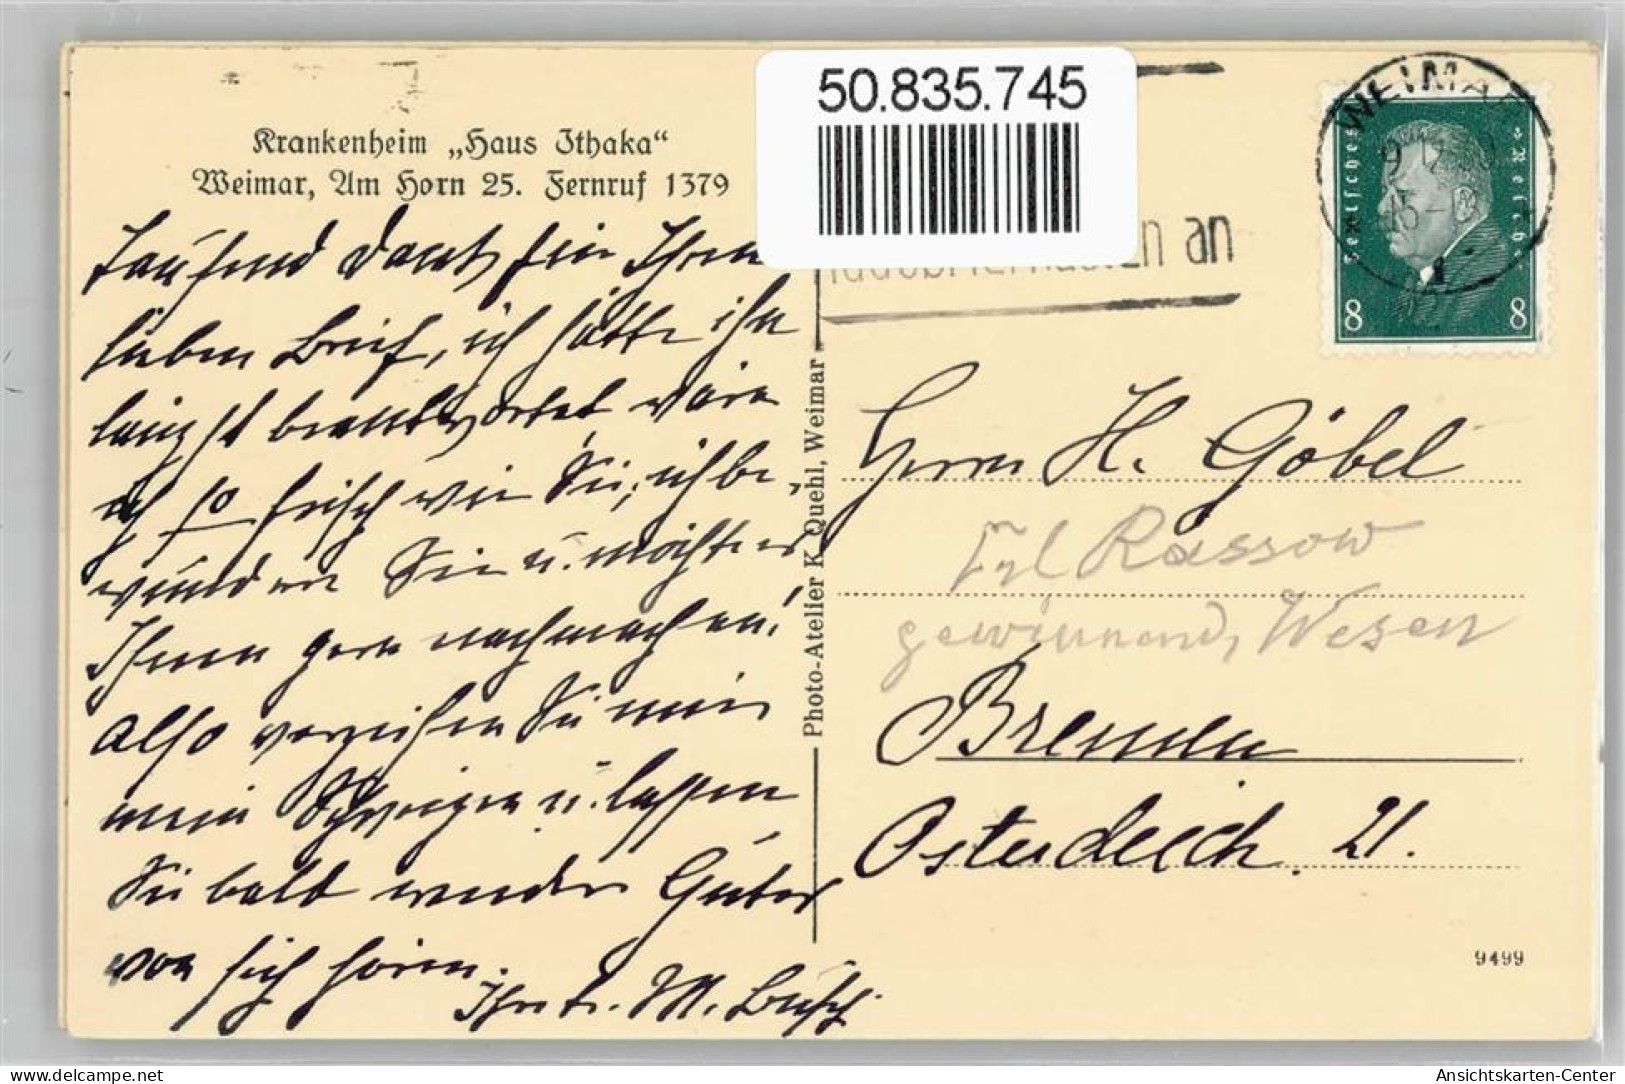 50.835.745
Krankenheim „Haus Ithaka“
Weimar, Am Horn 25. Fernruf 1379
WEIMAR
Deutsches Reich
8 8
n an
Tausend Dank für Ihren
lieben Brief, ich hätte ihn
längst beantwortet wäre
ich so frisch wie Sie, ich be-
wundere Sie u. möchte es
Ihnen gern nachmachen!
Also verzeihen Sie mir
mein Schweigen u. lassen
Sie bald wieder Gutes
von sich hören.
Ihre tr. M. Busch.
Photo-Atelier K. Quehl, Weimar
Herrn H. Göbel
Frl Rassow
gewinnend, Wesen
Bremen
Osterdeich. 21.
9499
delcampe.net
Ansichtskarten-Center